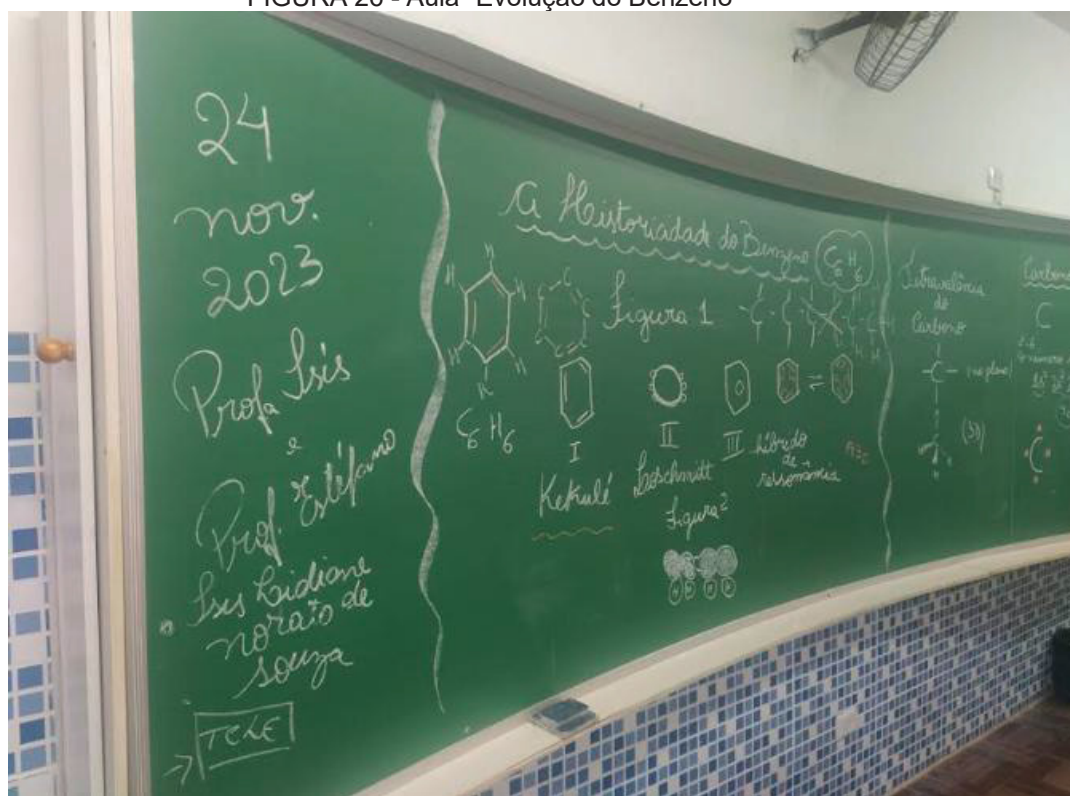 FIGURA 26 - Aula "Evolução do Benzeno"
24
nov.
2023
Profa Isis
e
Prof. Estéfano
Isis Lidiane
Norato de
Souza
TCLE
A Historicidade do Benzeno C6H6
Figura 1
C6H6
I
II
III
Kekulé
Loschmidt
híbrido
de
ressonância
Figura 2
Tetravalência
do
Carbono
(no plano)
(3D)
Carbono
C